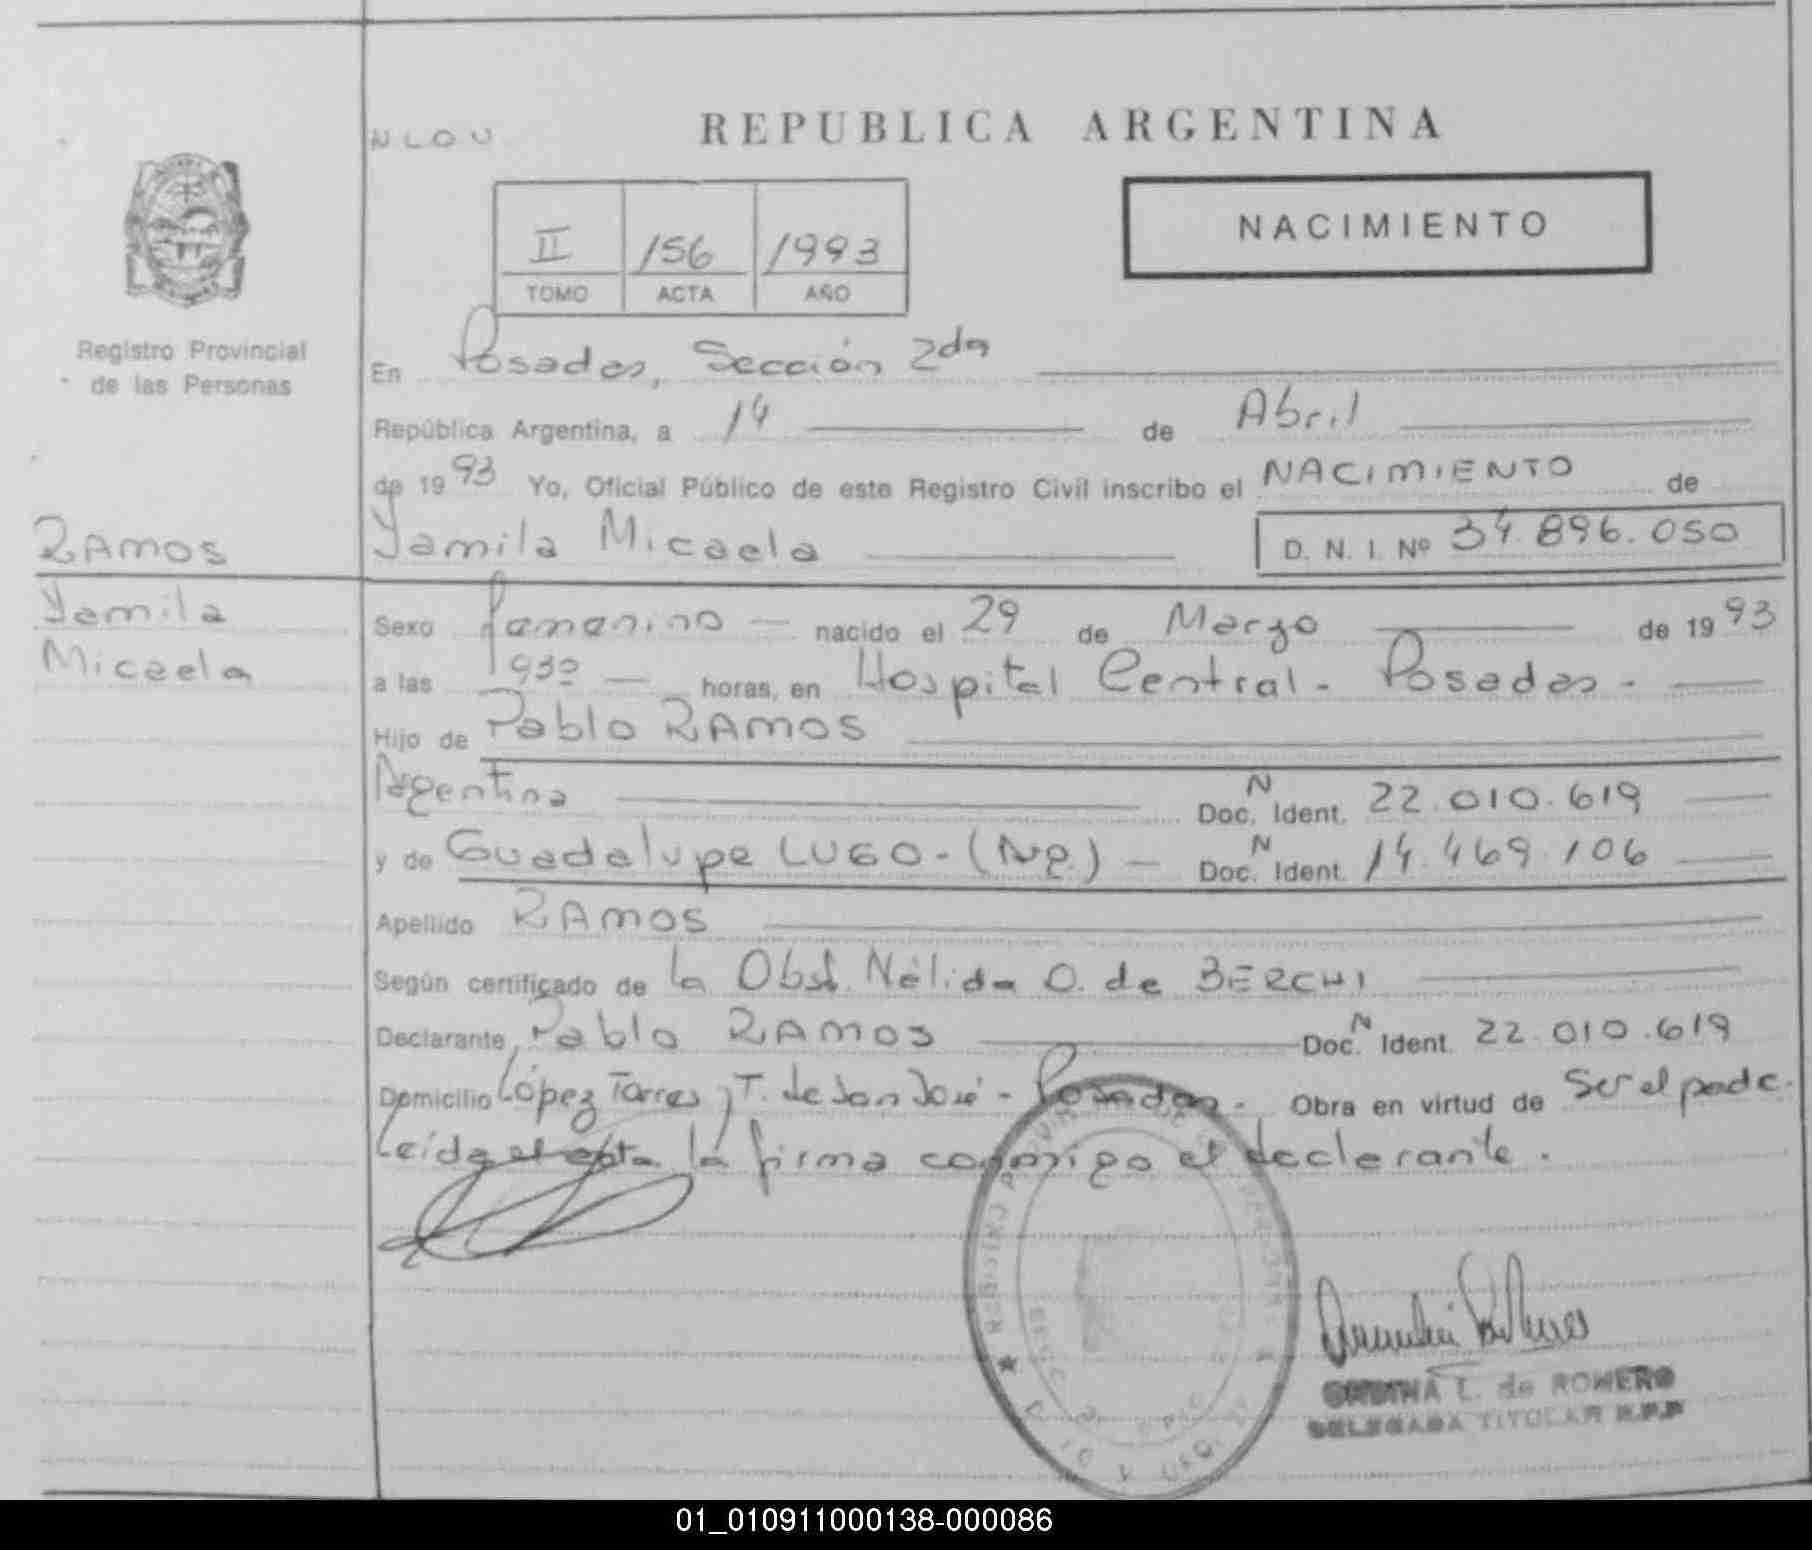 NLOU
REPUBLICA ARGENTINA
II 156 1993
TOMO ACTA AÑO
NACIMIENTO
Registro Provincial
de las Personas
En Posadas, Sección 2da
República Argentina, a 14 de Abril
de 1993 Yo, Oficial Público de este Registro Civil inscribo el NACIMIENTO de
RAMOS
Yamila Micaela D. N. I. Nº 34.896.050
Yamila
Micaela
Sexo femenino nacido el 29 de Marzo de 1993
a las 930 horas, en Hospital Central - Posadas -
Hijo de Pablo RAMOS
Argentina Doc. N Ident. 22.010.619
y de Guadalupe LUGO - Doc. N Ident. 14.469.106
Apellido RAMOS
Según certificado de la Obst. Nélida O. de BERCHI
Declarante Pablo RAMOS Doc. N Ident. 22.010.619
Domicilio López Torres y T. de San José - Posadas - Obra en virtud de Ser el padre.
Leída el acta la firma conmigo el declarante.
REGISTRO
L. de ROMERO
DELEGADA TITULAR R.P.P
01_010911000138-000086